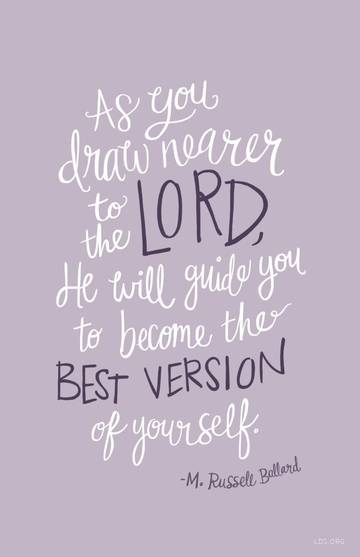 As you
draw nearer
to
the LORD,
He will guide you
to become the
BEST VERSION
of yourself.
-M. Russell Ballard
LDS.ORG